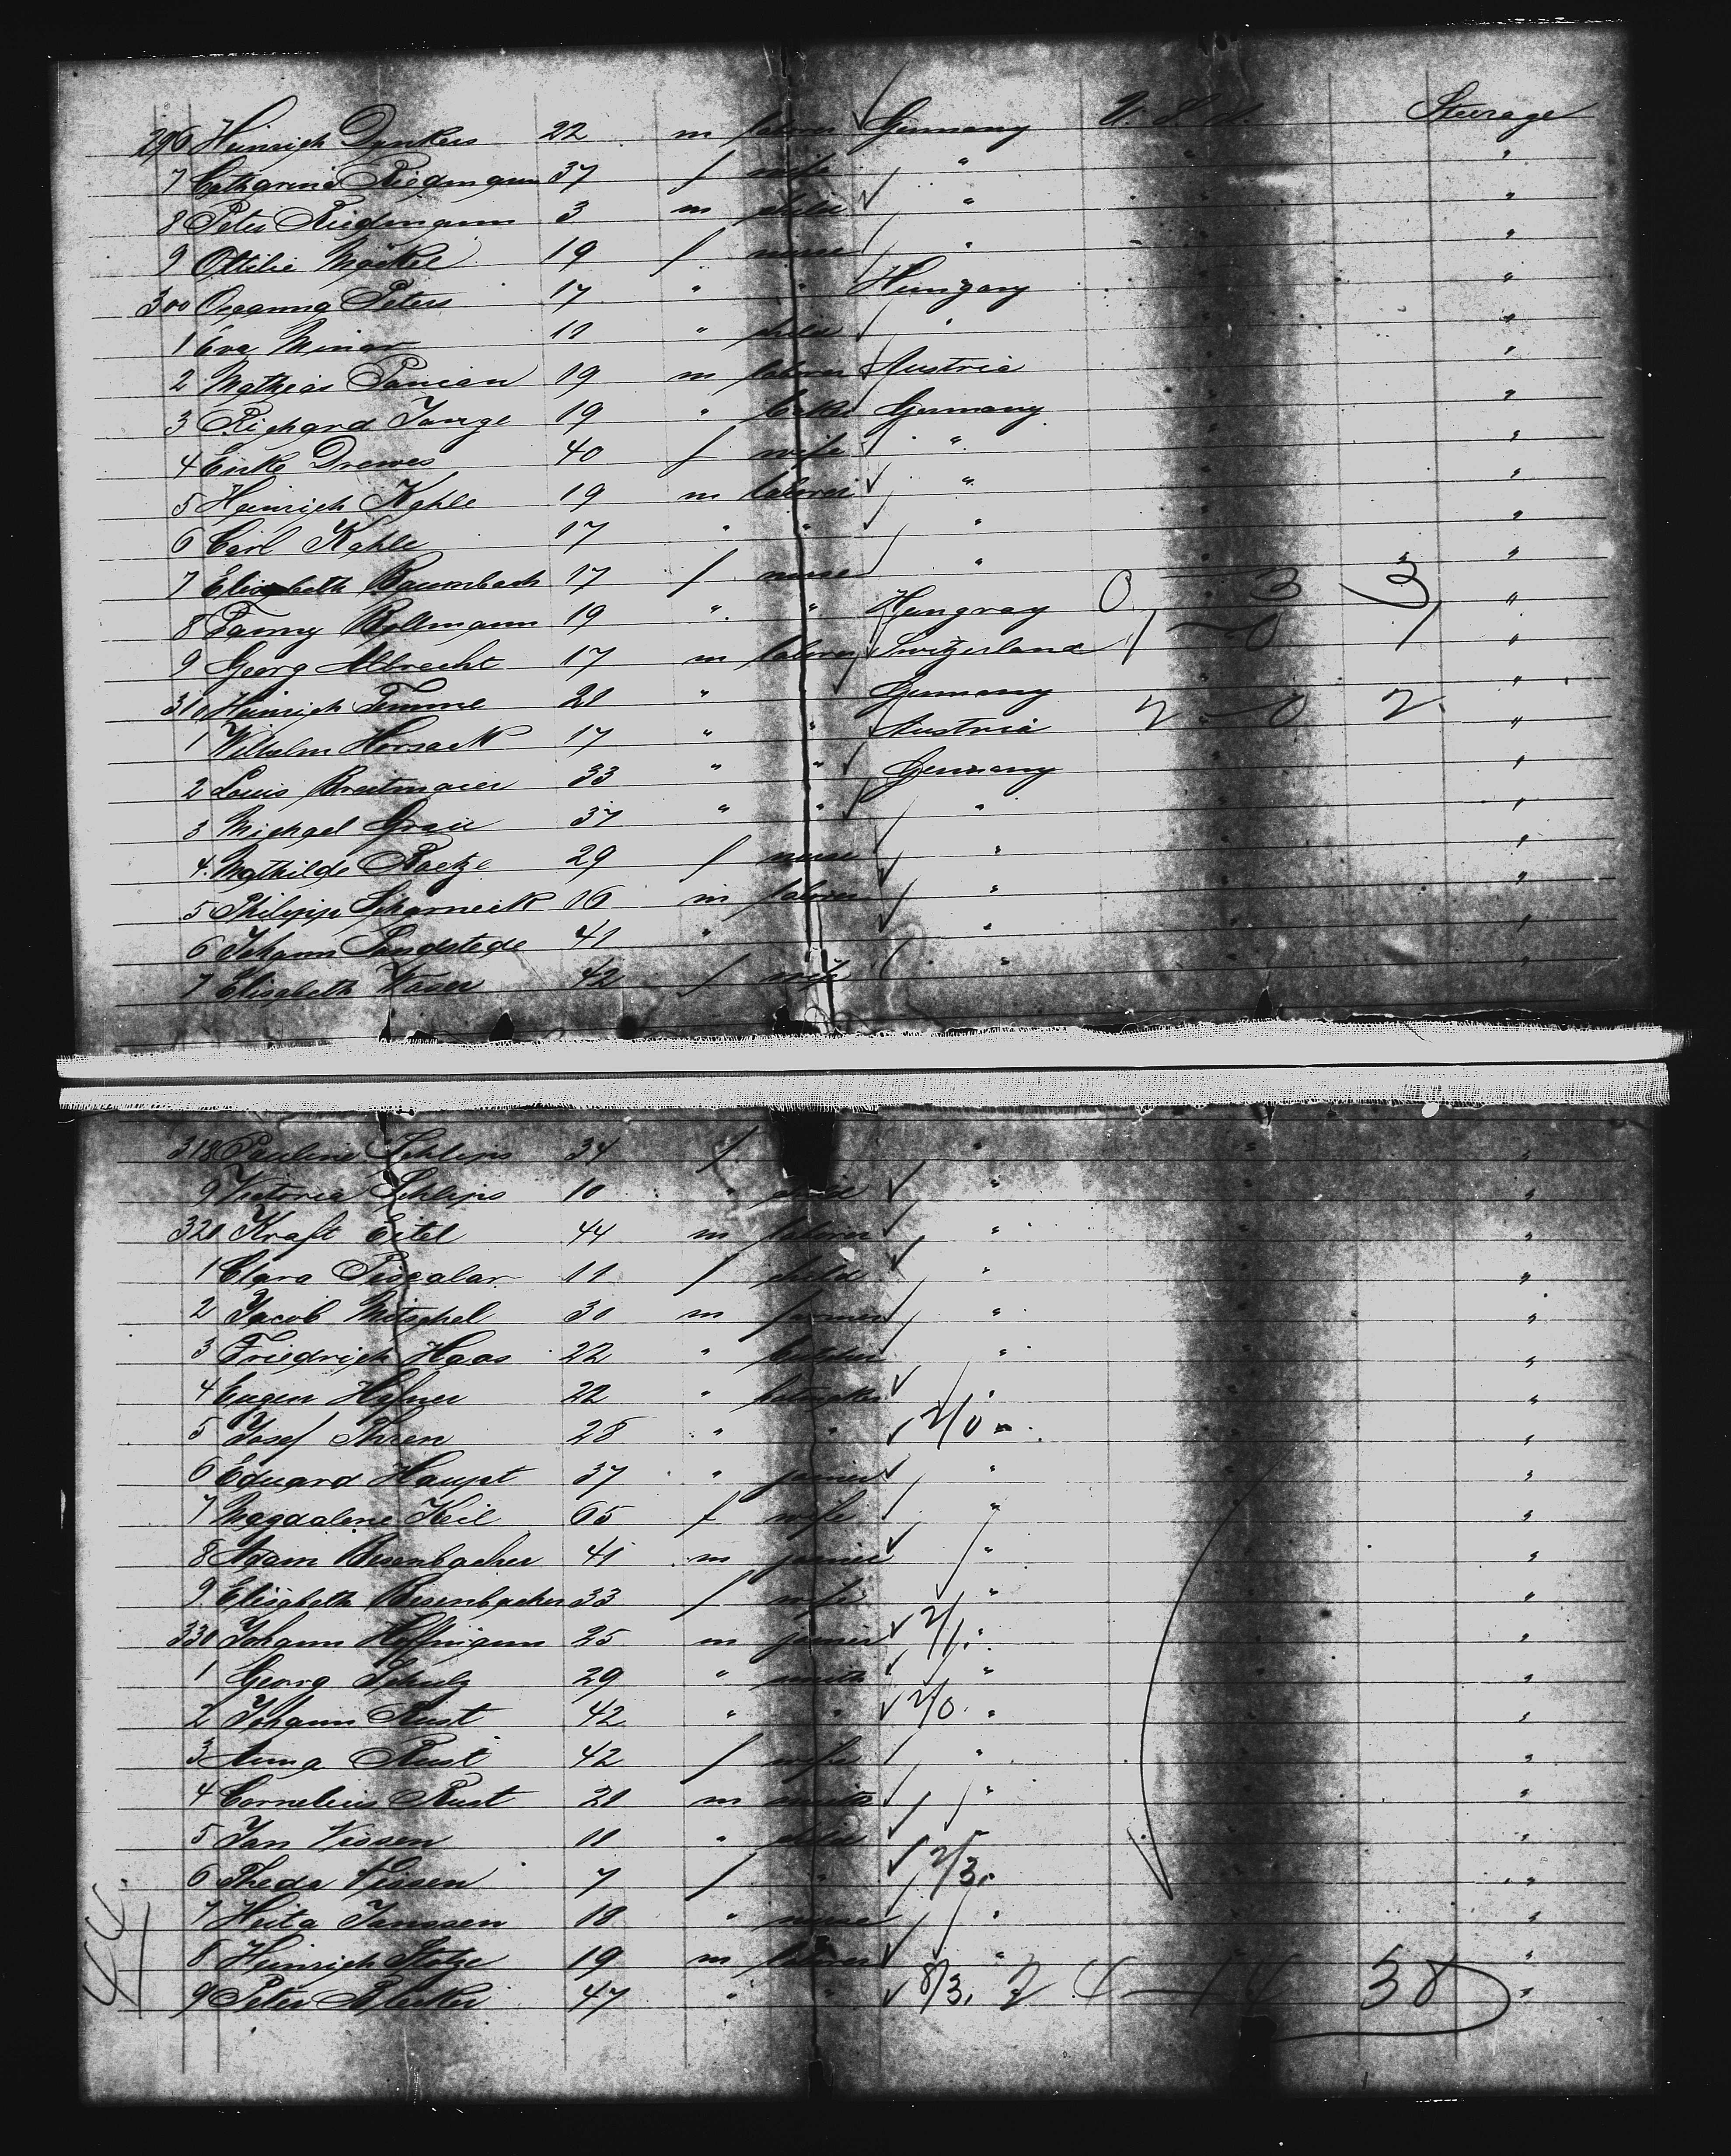 296 Heinrich Dankers 22 m laborer Germany U.S.A. Steerage
7 Catharina Riedmann 37 f wife " " "
8 Peter Riedmann 3 m child " " "
9 Ottilie Mäckel 19 f nurse " " "
300 Peters 17 " " Hungary " "
1 Eva Minar 11 " child " " "
2 Mathias Panian 19 m laborer Austria " "
3 Richard Junge 19 " Germany " "
4 Drewes 40 f wife " " "
5 Heinrich Kahle 19 m laborer " " "
6 Carl Kahle 17 " " " " "
7 Elisabeth Baumbach 17 f nurse " " "
8 Fanny Bollmann 19 " " Hungray 0 3 3 "
9 Georg Albrecht 17 m laborer Switzerland 1 0 1 "
310 Heinrich Temme 21 " " Germany " "
1 Wilhelm Horsack 17 " " Austria 2 0 2 "
2 Louis Breitmaier 33 " " Germany "
3 Michael Grau 37 " " " "
4 Mathilde Raetze 29 f nurse " "
5 Philipp Scharneck 16 m laborer " "
6 Johann Sandstede 41 " " "
7 Elisabeth Waser 42 f wife " "
318 Pauline Schlips 34 f " " "
9 Victoria Schlips 10 " child " " "
320 Kraft Eitel 44 m laborer " " "
1 Clara Piscalar 11 f child " " "
2 Jacob Mitschel 30 m farmer " " "
3 Friedrich Haas 22 " " " "
4 Eugen Hafner 22 " " " "
5 Josef Thren 28 " " 2/0 " "
6 Eduard Haupt 37 " joiner " " "
7 Magdalene Keil 65 f wife " " "
8 Adam Besenbacher 41 m joiner " " "
9 Elisabeth Besenbacher 33 f wife " " "
330 Johann Hoffmann 25 m joiner 2/1 " " "
1 Georg Schulz 29 " smith " " "
2 Johann Rust 42 " " 2/0 " " "
3 Anna Rust 42 f wife " " "
4 Cornelius Rust 21 m smith " " "
5 Jan Vissen 11 " child " " "
6 Theda Vissen 7 f " 2/3 " " "
7 Janssen 18 " nurse " " "
8 Heinrich Stolze 19 m laborer " " "
9 Peter Blecker 47 " " 8/3 2 4 14 38 "